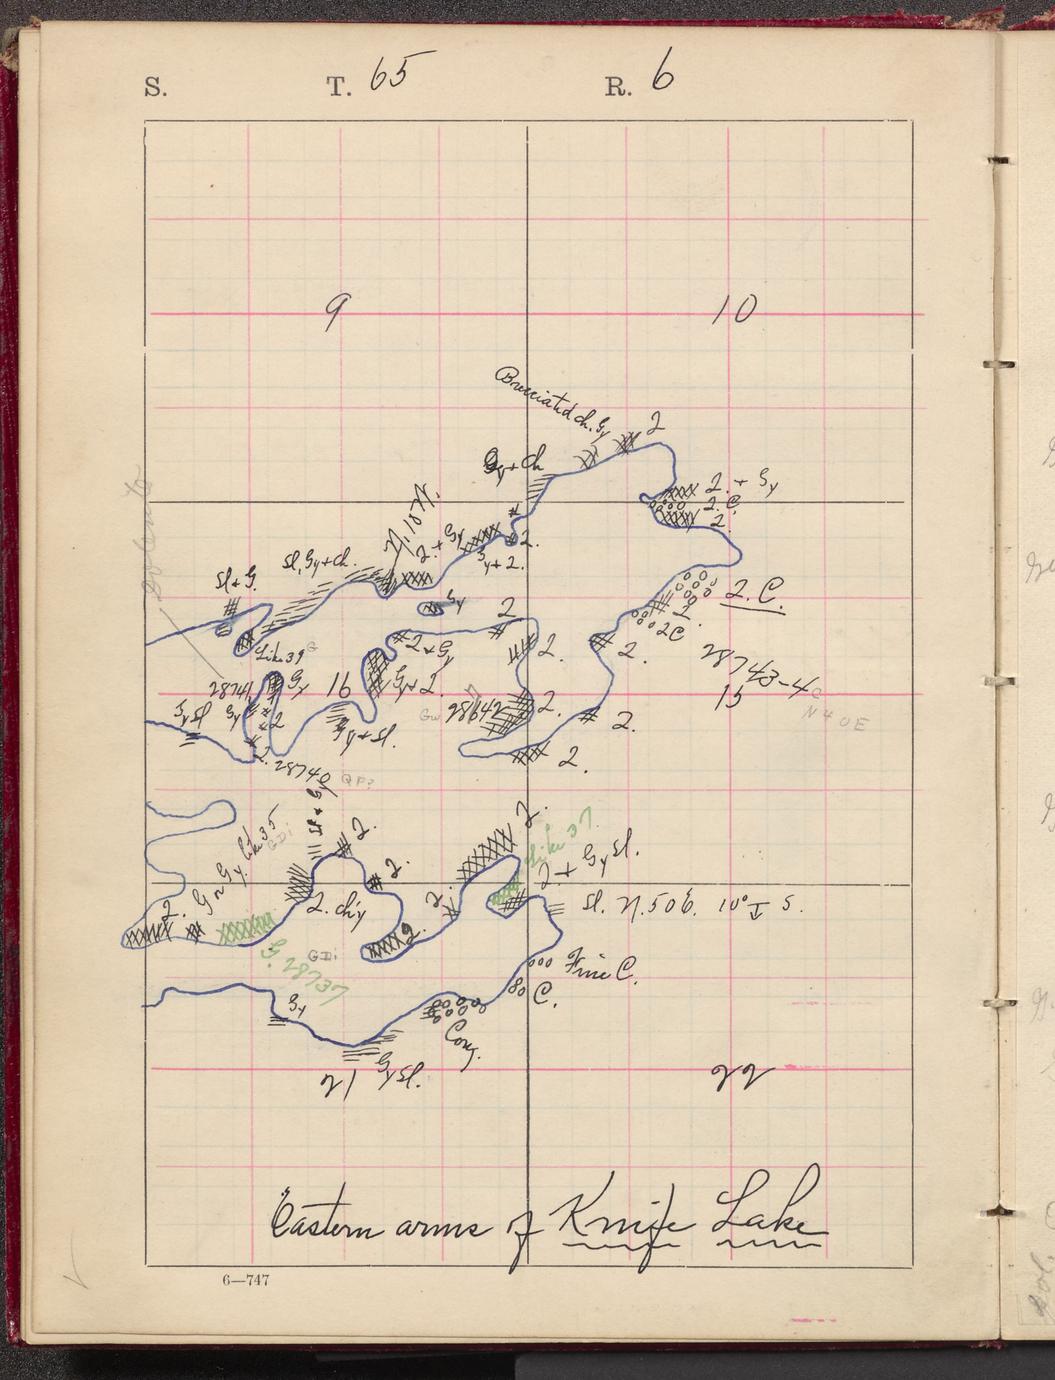 S. T. 65 R. 6
9
10
Brecciated ch. Gy
2
Gy + Ch
2. + Gy
2. C.
2.
2.
N. 10 N.
2. + Gy
Gy + 2.
sl, Gy + ch.
sl + G.
Gy
2
2. C.
2
2C
2.
Like 39
G
2 + Gy
2.
28743-4
28741
Gy
16
Gy + 2.
28642
2.
15
Gy sl
Gy
2
Gy + sl.
2.
2.
2.
28740
QP?
sl + Gy
2.
2.
Like 37.
Gy like 35
GDi
2.
2 + Gy sl.
2. ch'y
2.
sl. N. 50 E. 10° I S.
2.
2.
G. 28737
GDi
Fine C.
C.
Gy
Cong.
Gy sl.
21
22
Eastern arms of Knife Lake
6—747